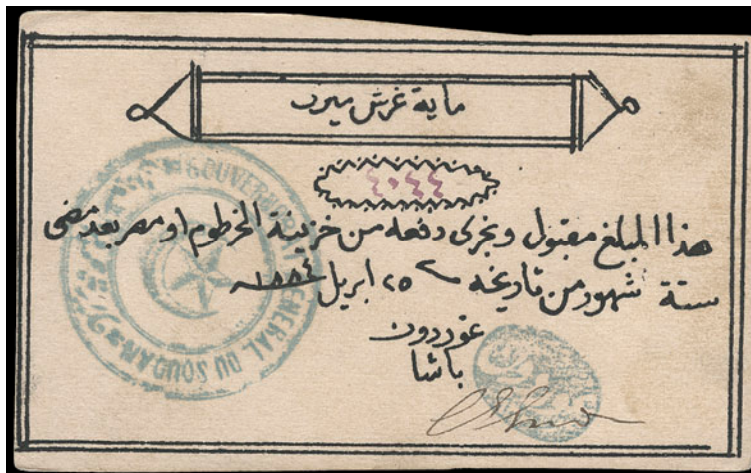 ماية غرش ميرى
٤٠٤٤
هذا المبلغ مقبول ويجرى دفعه من خزينة الخرطوم او مصر بعد مضى
ستة شهور من تاريخه ٢٥ ابريل ١٨٨٤
غوردون
باشا
GOUVERNORAT GENERAL DU SOUDAN